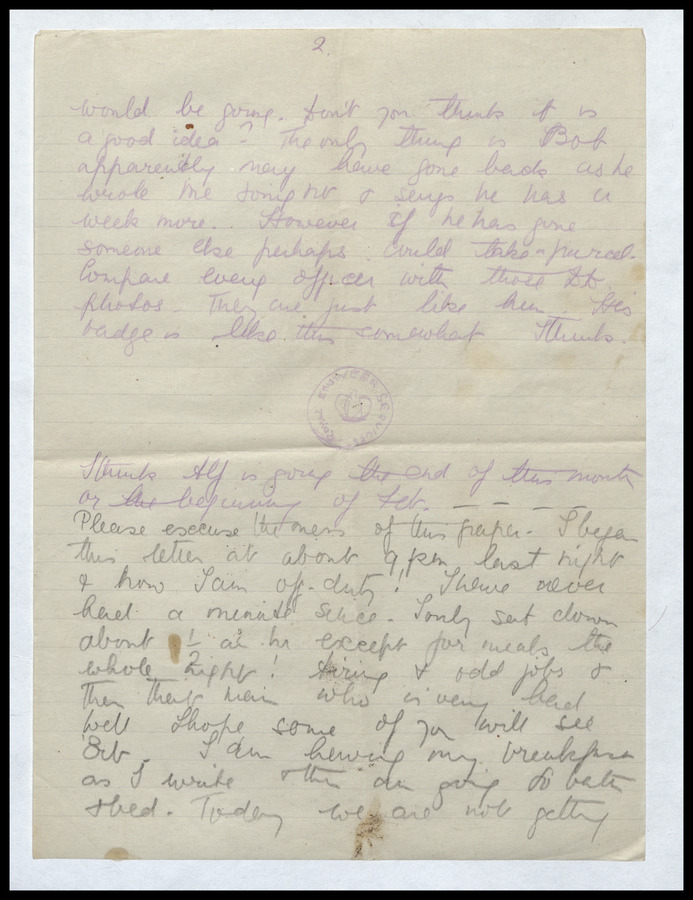 2.
would be going. Don't you think it is
a good idea? The only thing is Bob
apparently may have gone back as he
wrote me tonight & says he has a
week more. However if he has gone
someone else perhaps could take a parcel.
Compare every officer with those
photos. They are just like him. His
badge is like this somewhat I think.
ROYAL ENGINEER SERVICES
I think Alf is going the end of this month
or the beginning of Feb. — — — —
Please excuse the mess of this paper. I began
this letter at about 9 pm last night
& now I am off-duty! I have never
had a minute since. I only sat down
about ½ an hr except for meals the
whole night! & odd jobs &
then that man who is very bad
Well I hope some of you will see
I am having my breakfast
as I write then am going to bath
& bed. Today we are not getting